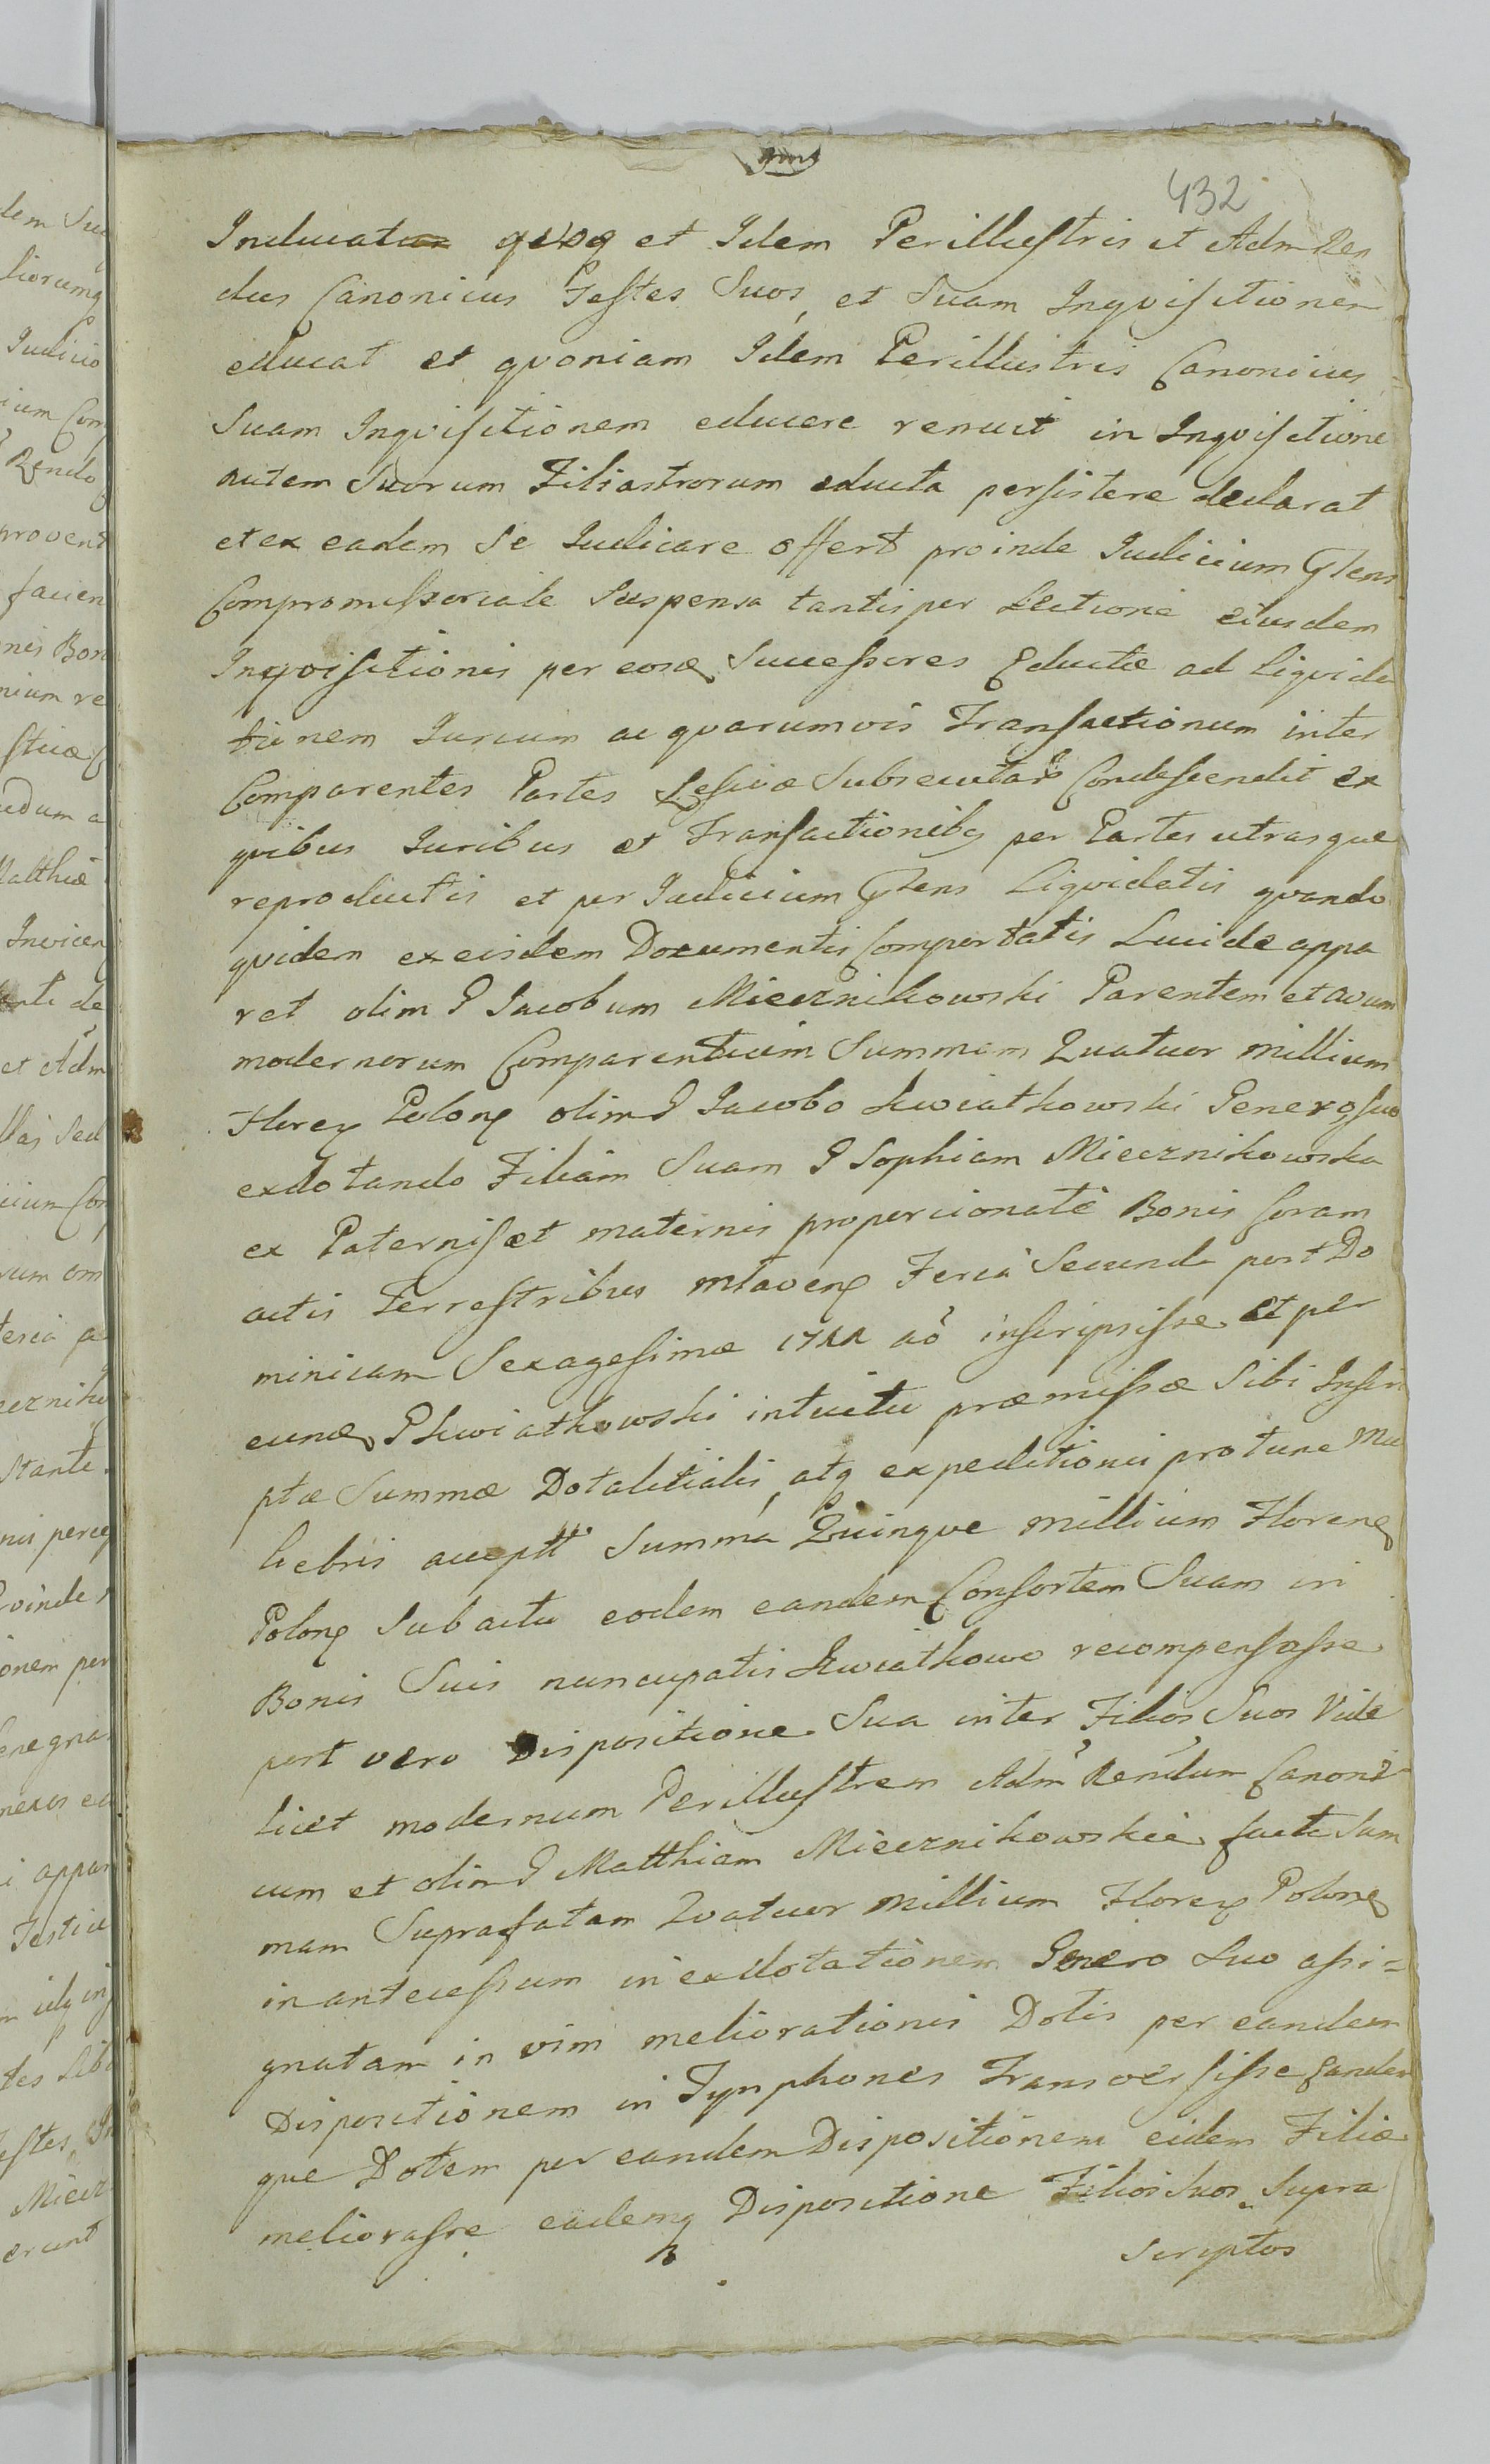 432
Inducat quoq et Idem Perillustris et Adm Ren
dus Canonicus Testes Suos, et Suam Inqvisitionem
educat et qvoniam Idem Perillustris Canonicus
Suam Inqvisitionem educere renuit in Inqvisitione
autem Suorum Filiastrorum educta persistere declarat
et ex eadem Se Iudicare offert proinde Iudicium
Compromissoriale Suspensa tantisper Lectione eiusdem
Inqvisitionis per eosd Successores Eductæ ad liqvida
tionem Iurium ac qvarumvis Transactionum inter
Comparentes Partes Subsecutar Condescendit ex
qvibus Iuribus et Transactionibq per Partes utrasque
reproductis et per Iudicium liqvidatis qvando
qvidem ex eisdem Documentis Comportatis Lucide appa
ret olim G Iacobum Miecznikowski Parentem et avum
modernorum Comparentium Summam Quatuor millium
Floreņ Polonņ olim G Iacobo Kwiatkowski Genero suo
exdotando Filiam Suam G Sophiam Miecznikowska
ex Paternis et maternis proporcionate Bonis Coram
actis Terrestribus Mlavenņ Feria Secunda post Do
minicam Sexagesimæ aõ inscripsisse et per
eund G Kwiatkowski intuitu præmissæ Sibi Inscri
ptæ Summæ Dotalitialis, atq expeditionis pro tunc Mu
liebris Summa Quinqve millium Florenņ
Polonņ Sub actu eodem eandem Consortem Suam in
Bonis Suis nuncupatis Kwiatkowo recompensasse
post vero Dispositione Sua inter Filios Suos Vide
licet modernum Perillustrem Adm Rendum Canoni
cum et olim G Matthiam Miecznikowskie facta Sum
mam Suprafatam Qvatuor Millium Floreņ Polonņ
in antecessum in exdotationem Genero Suo assi=
gnatam in vim meliorationis Dotis per eandem
Dispositionem in Tynphones Transversisse Eandem
que Dotem per eandem Dispositionem eidem Filiæ
meliorasse eademq Dispositione Filios Suos Supra
scriptos